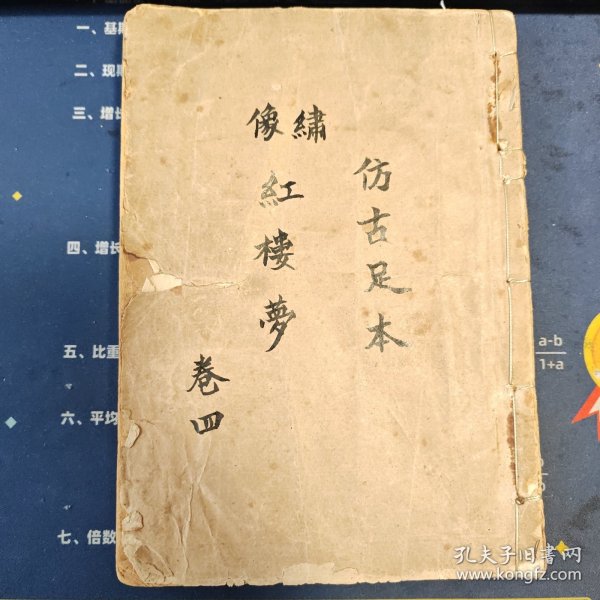 仿古足本
繡像
紅樓夢
卷四
一、基
二、现
三、增长
四、增长
五、比重
六、平均
七、倍数
a-b
1+a
孔夫子旧书网
www.kongfz.com